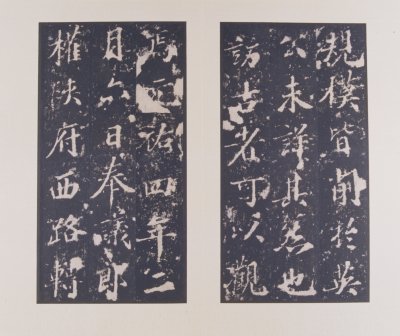 規模皆於英
公未詳其也
訪古者可以觀
焉元祐四年二
月六日奉議郎
權陝府西路轉